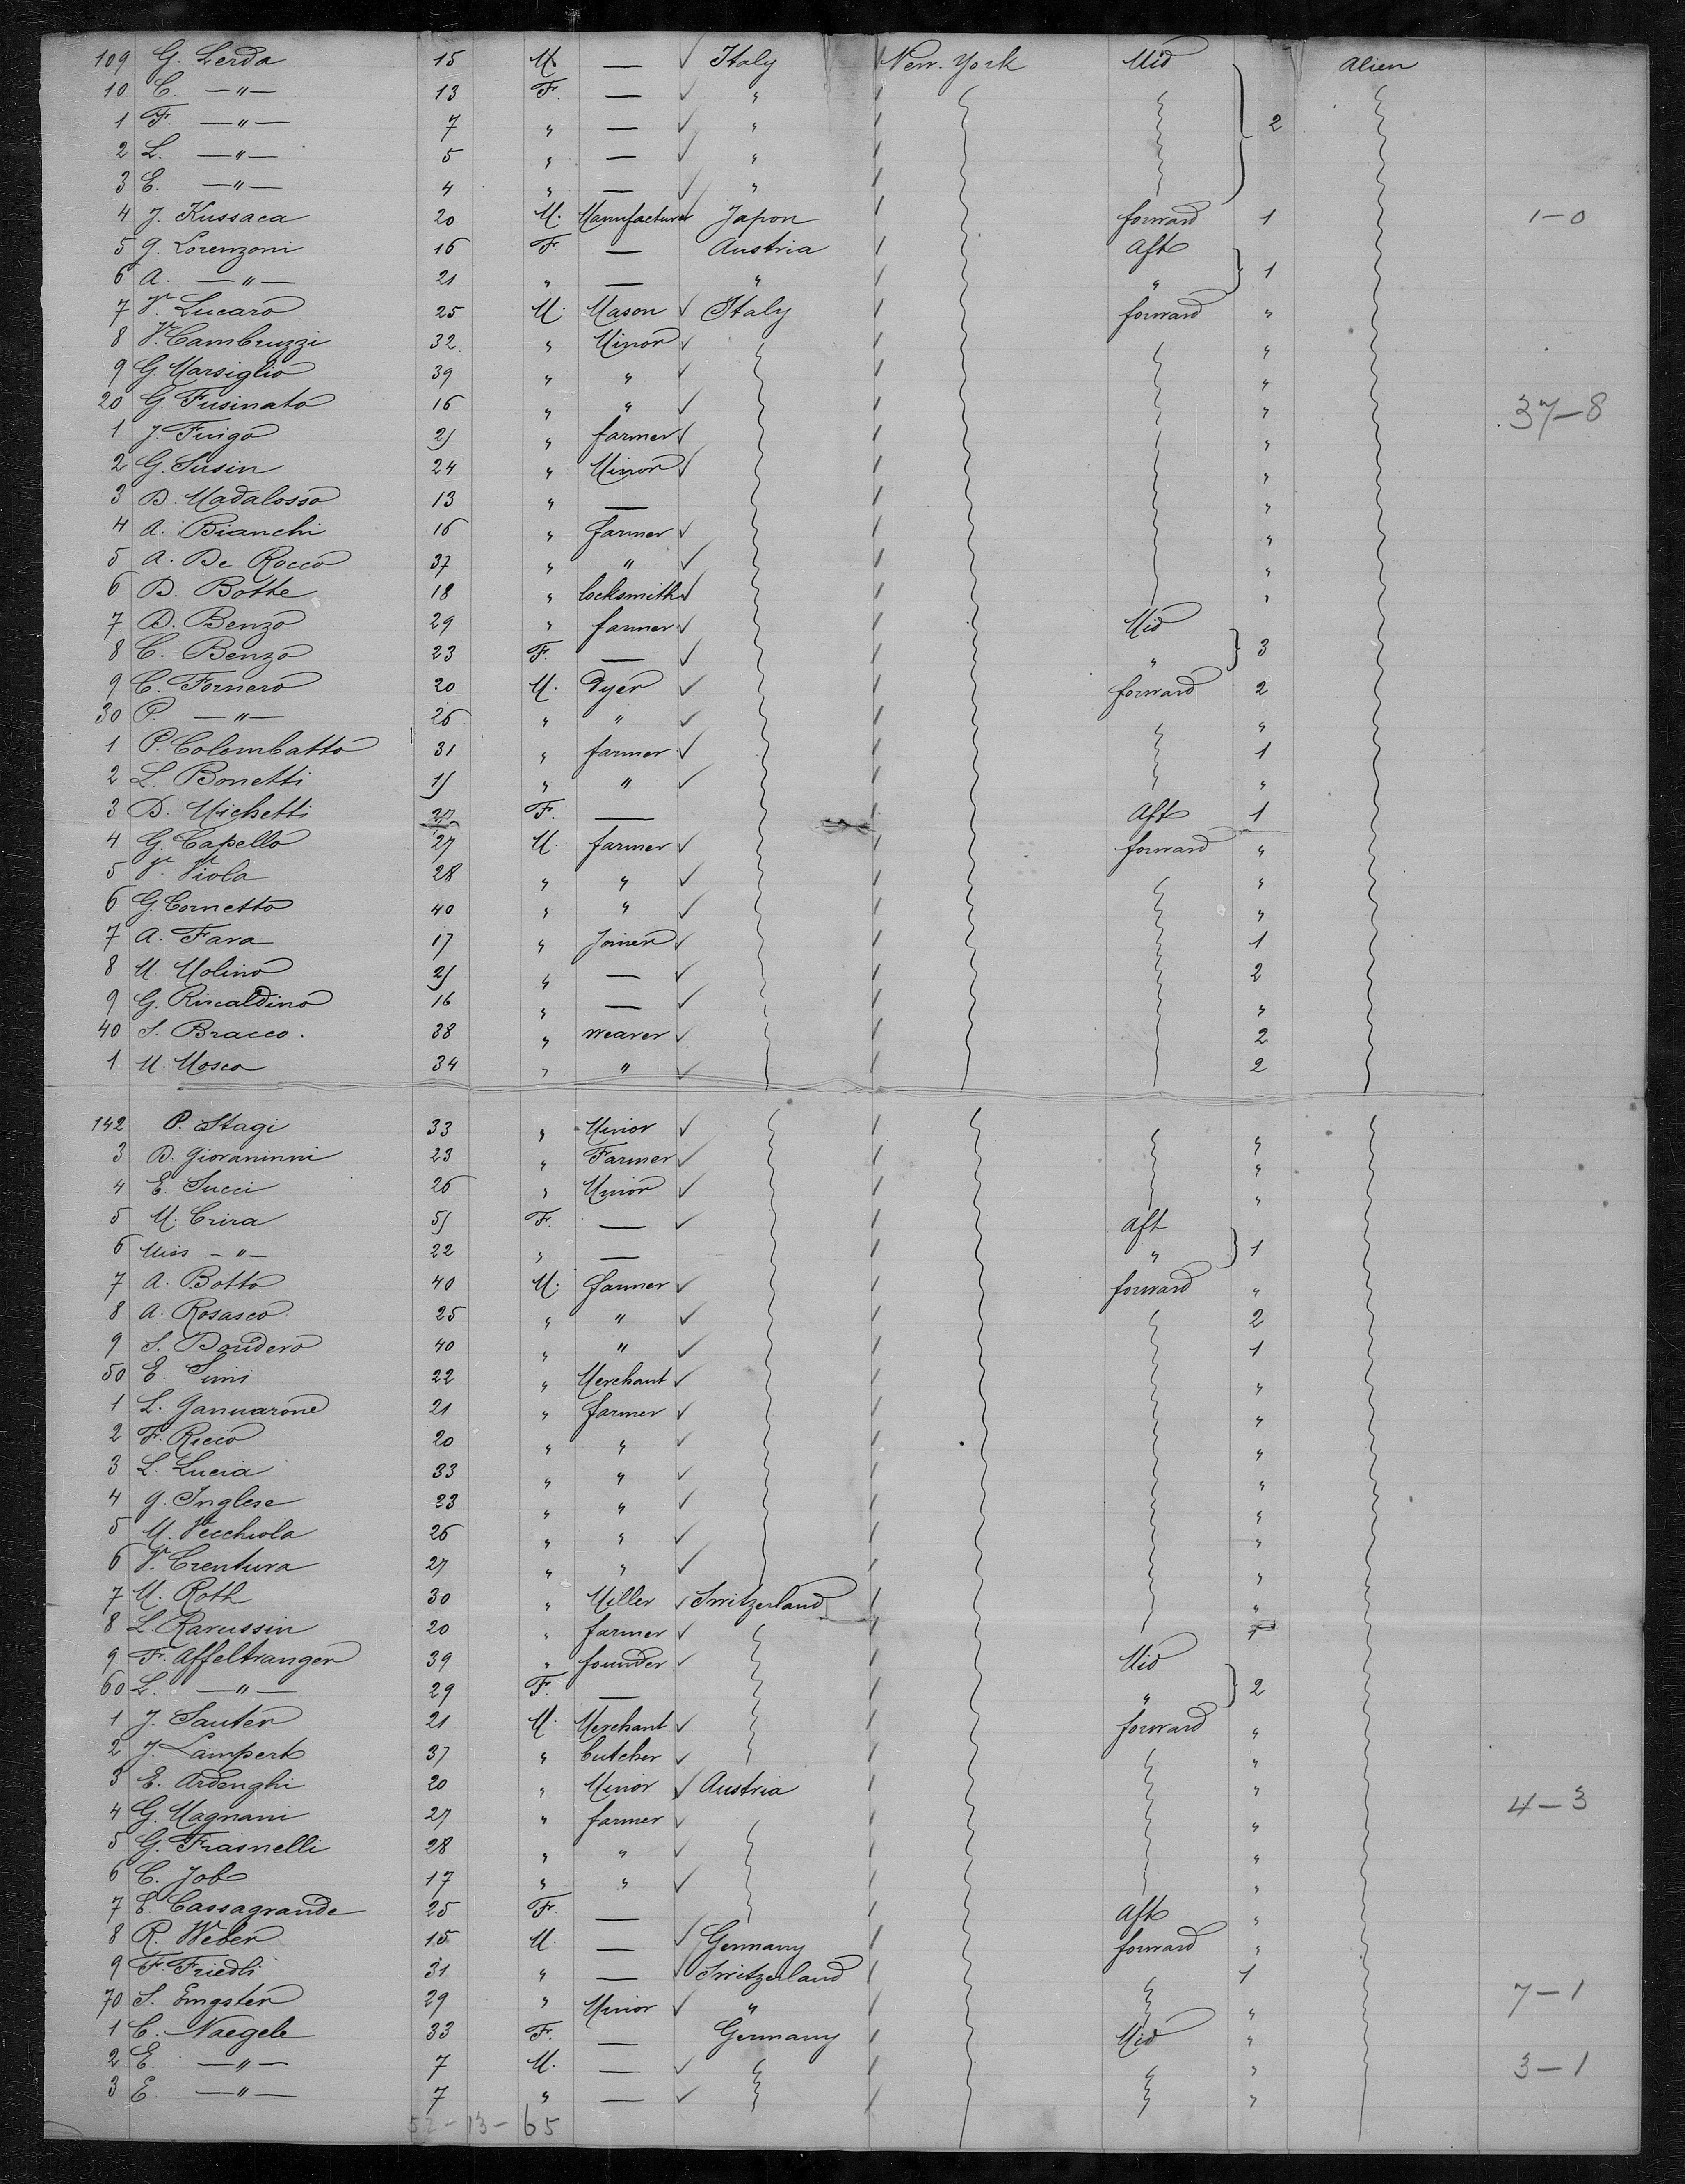 109 G. Lerda 15 M. — ✓ Italy New-York Mid Alien
10 C. —"— 13 F. — ✓ "
1 F. —"— 7 " — ✓ " 2
2 L. —"— 5 " — ✓ "
3 E. —"— 4 " — ✓ "
4 J. Kussaca 20 M. Manufacturer Japon forward 1 1-0
5 G. Lorenzoni 16 F. — Austria Aft
6 A. —"— 21 " — " " 1
7 V. Lucaro 25 M. Mason ✓ Italy forward "
8 V. Cambruzzi 32 " Minor ✓ "
9 G. Marsiglio 39 " " ✓ "
20 G. Fusinato 16 " " ✓ " 37-8
1 J. Frigo 21 " farmer ✓ "
2 G. Susin 24 " Minor ✓ "
3 D. Madalosso 13 " — "
4 A. Bianchi 16 " farmer ✓ "
5 A. De Rocco 37 " " ✓ "
6 D. Botte 18 " locksmith ✓ "
7 D. Benzo 29 " farmer ✓ Mid
8 C. Benzo 23 F. — ✓ " 3
9 C. Fornero 20 M. Dyer ✓ forward 2
30 P. —"— 26 " " ✓ "
1 P. Colombatto 31 " farmer ✓ 1
2 L. Bonetti 15 " " ✓ "
3 D. Michetti 27 F. — Aft 1
4 G. Capello 27 M. farmer ✓ forward "
5 V. Viola 28 " " ✓ "
6 G. Cornetto 40 " " ✓ "
7 A. Fara 17 " Joiner ✓ 1
8 M. Molino 25 " — ✓ 2
9 G. Riscaldino 16 " — ✓ "
40 S. Bracco. 38 " weaver ✓ 2
1 M. Mosca 34 " " ✓ 2
142 P. Stagi 33 " Minor ✓ "
3 D. Giovaninni 23 " Farmer ✓ "
4 E. Succi 26 " Minor ✓ "
5 M. Crira 55 F. — ✓ Aft
6 Miss —"— 22 " — " 1
7 A. Botto 40 M. farmer ✓ forward "
8 A. Rosasco 25 " " ✓ 2
9 S. Boudero 40 " " ✓ 1
50 E. Simi 22 " Merchant ✓ "
1 L. Januarone 21 " farmer ✓ "
2 F. Riccio 20 " " ✓ "
3 L. Lucia 33 " " ✓ "
4 G. Inglese 23 " " ✓ "
5 M. Vecchiola 26 " " ✓ "
6 V. Crentura 27 " " ✓ "
7 M. Roth 30 " Miller ✓ Switzerland "
8 L. Ravussin 20 " farmer ✓ 1
9 F. Affeltranger 39 " founder ✓ Mid
60 L. —"— 29 F. — " 2
1 J. Sauter 21 M. Merchant ✓ forward "
2 J. Lampert 37 " butcher ✓ "
3 E. Ardenghi 20 " Minor ✓ Austria "
4 G. Magnani 27 " farmer ✓ " 4-3
5 G. Frasnelli 28 " " ✓ "
6 C. Job 17 " " ✓ "
7 E. Cassagrande 25 F. — Aft "
8 R. Weber 15 M. — ✓ Germany forward "
9 F. Friedli 31 " — ✓ Switzerland 1
70 S. Emgster 29 " Minor ✓ " " 7-1
1 C. Naegele 33 F. — Germany Mid "
2 E. —"— 7 M. — ✓ " 3-1
3 E. —"— 7 " — ✓ "
52-13-65